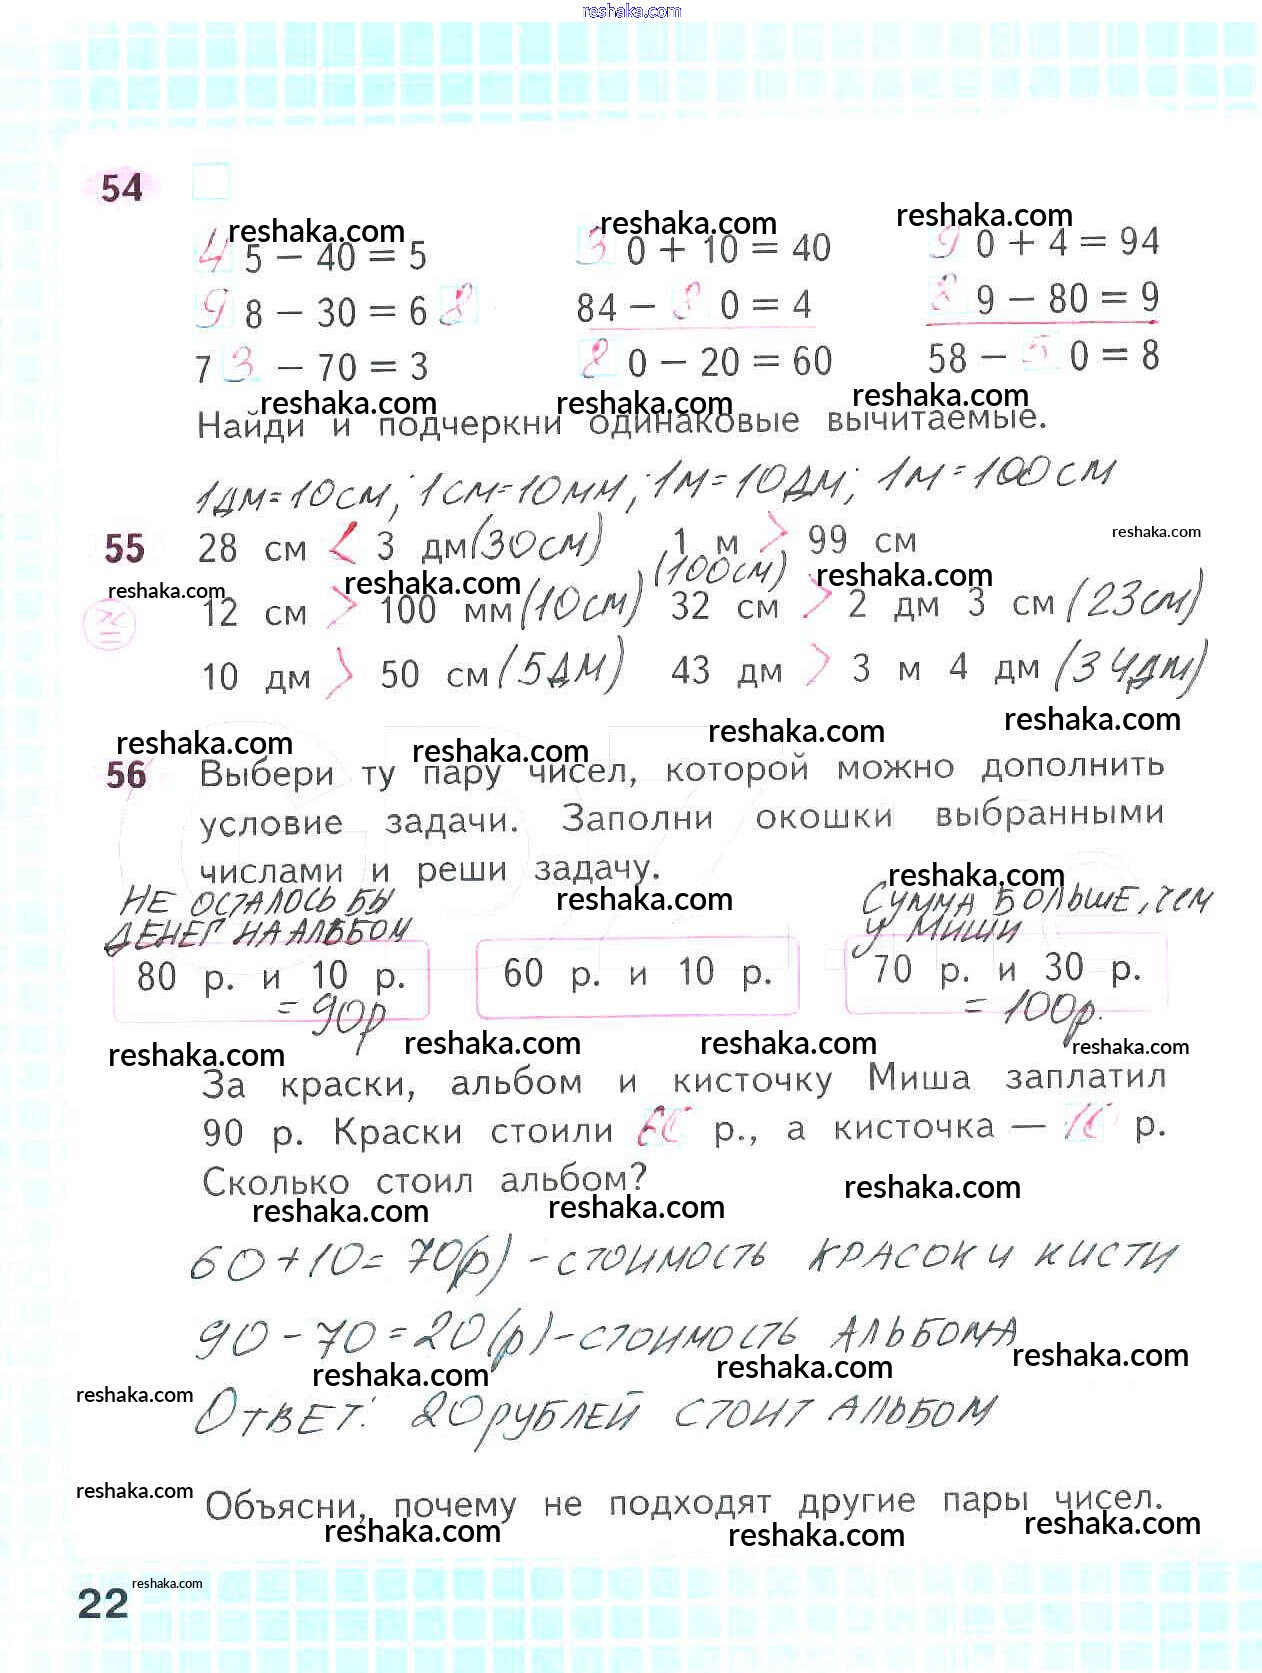 reshaka.com
54
reshaka.com reshaka.com reshaka.com
45 − 40 = 5 30 + 10 = 40 90 + 4 = 94
98 − 30 = 68 84 − 80 = 4 89 − 80 = 9
73 − 70 = 3 80 − 20 = 60 58 − 50 = 8
reshaka.com reshaka.com reshaka.com
Найди и подчеркни одинаковые вычитаемые.
1дм=10см; 1см=10мм; 1м=10дм; 1м=100см
55 28 см < 3 дм(30см) 1 м > 99 см reshaka.com
(100см)
reshaka.com reshaka.com reshaka.com
12 см > 100 мм(10см) 32 см > 2 дм 3 см (23см)
10 дм > 50 см(5дм) 43 дм > 3 м 4 дм (34дм)
reshaka.com reshaka.com reshaka.com reshaka.com
56 Выбери ту пару чисел, которой можно дополнить
условие задачи. Заполни окошки выбранными
числами и реши задачу.
reshaka.com reshaka.com
НЕ ОСТАЛОСЬ БЫ СУММА БОЛЬШЕ, ЧЕМ
ДЕНЕГ НА АЛЬБОМ У МИШИ
80 р. и 10 р. 60 р. и 10 р. 70 р. и 30 р.
= 90р = 100р.
reshaka.com reshaka.com reshaka.com reshaka.com
За краски, альбом и кисточку Миша заплатил
90 р. Краски стоили 60 р., а кисточка — 10 р.
Сколько стоил альбом?
reshaka.com reshaka.com reshaka.com
60+10=70(р) - СТОИМОСТЬ КРАСОК И КИСТИ
90-70=20(р)-СТОИМОСТЬ АЛЬБОМА
reshaka.com reshaka.com reshaka.com reshaka.com
ОТВЕТ: 20 РУБЛЕЙ СТОИТ АЛЬБОМ
reshaka.com
Объясни, почему не подходят другие пары чисел.
reshaka.com reshaka.com reshaka.com
22 reshaka.com